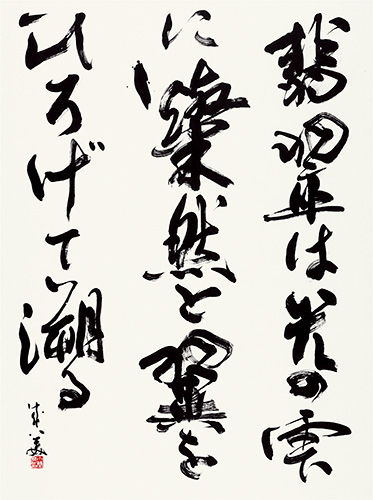 翡翠は花の雲
に燦然と翼を
ひろげて溯る